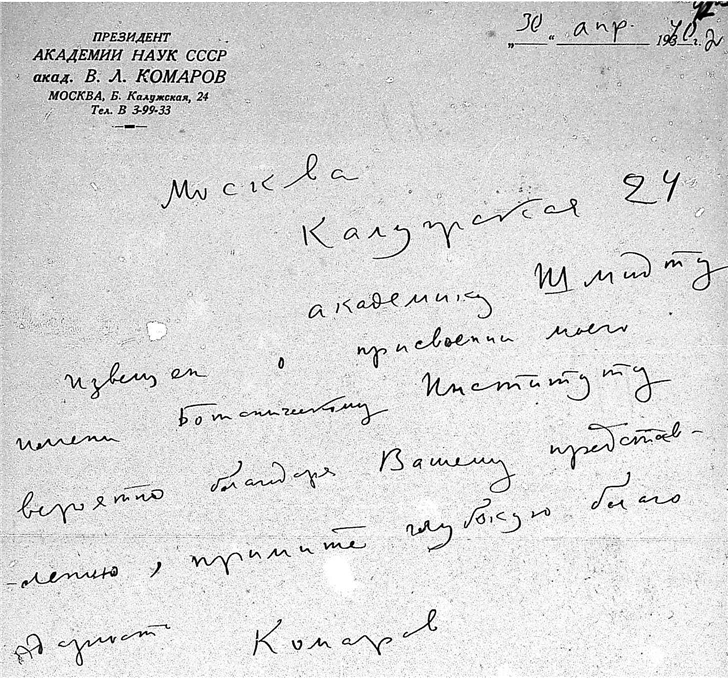 ПРЕЗИДЕНТ
АКАДЕМИИ НАУК СССР
акад. В. Л. КОМАРОВ
МОСКВА, Б. Калужская, 24
Тел. В 3-99-33
„30“ апр. 1940 г.
Москва
Калужская 24
академику Шмидту
извещен о присвоении моего
имени Ботаническому Институту
вероятно благодаря Вашему представ-
-лению, примите глубокую благо
дарность Комаров